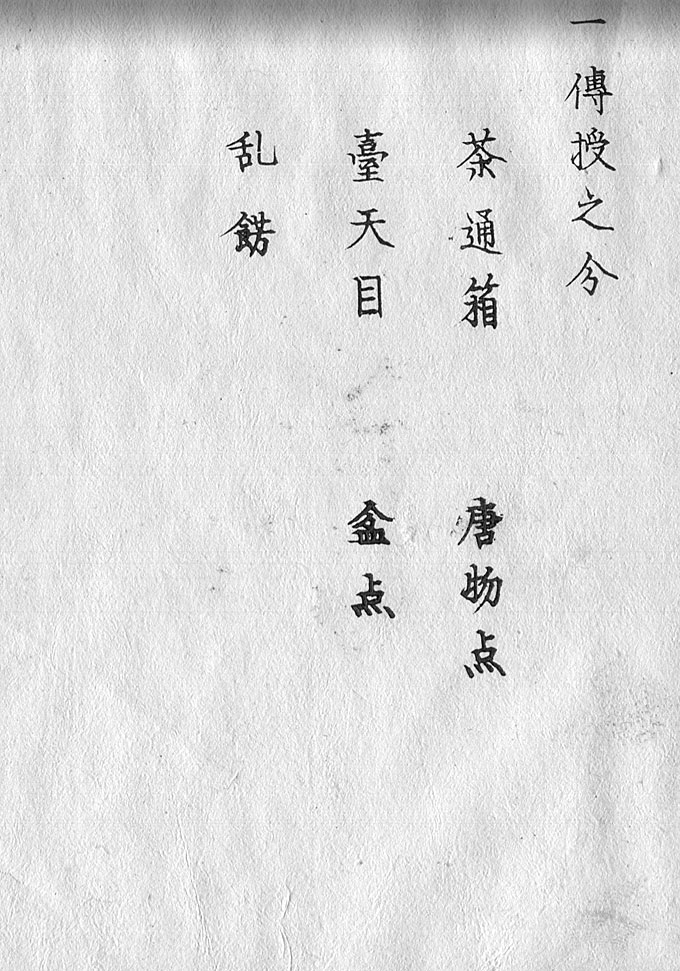 一傳授之分
茶通箱　唐物点
臺天目　盆点
乱餝